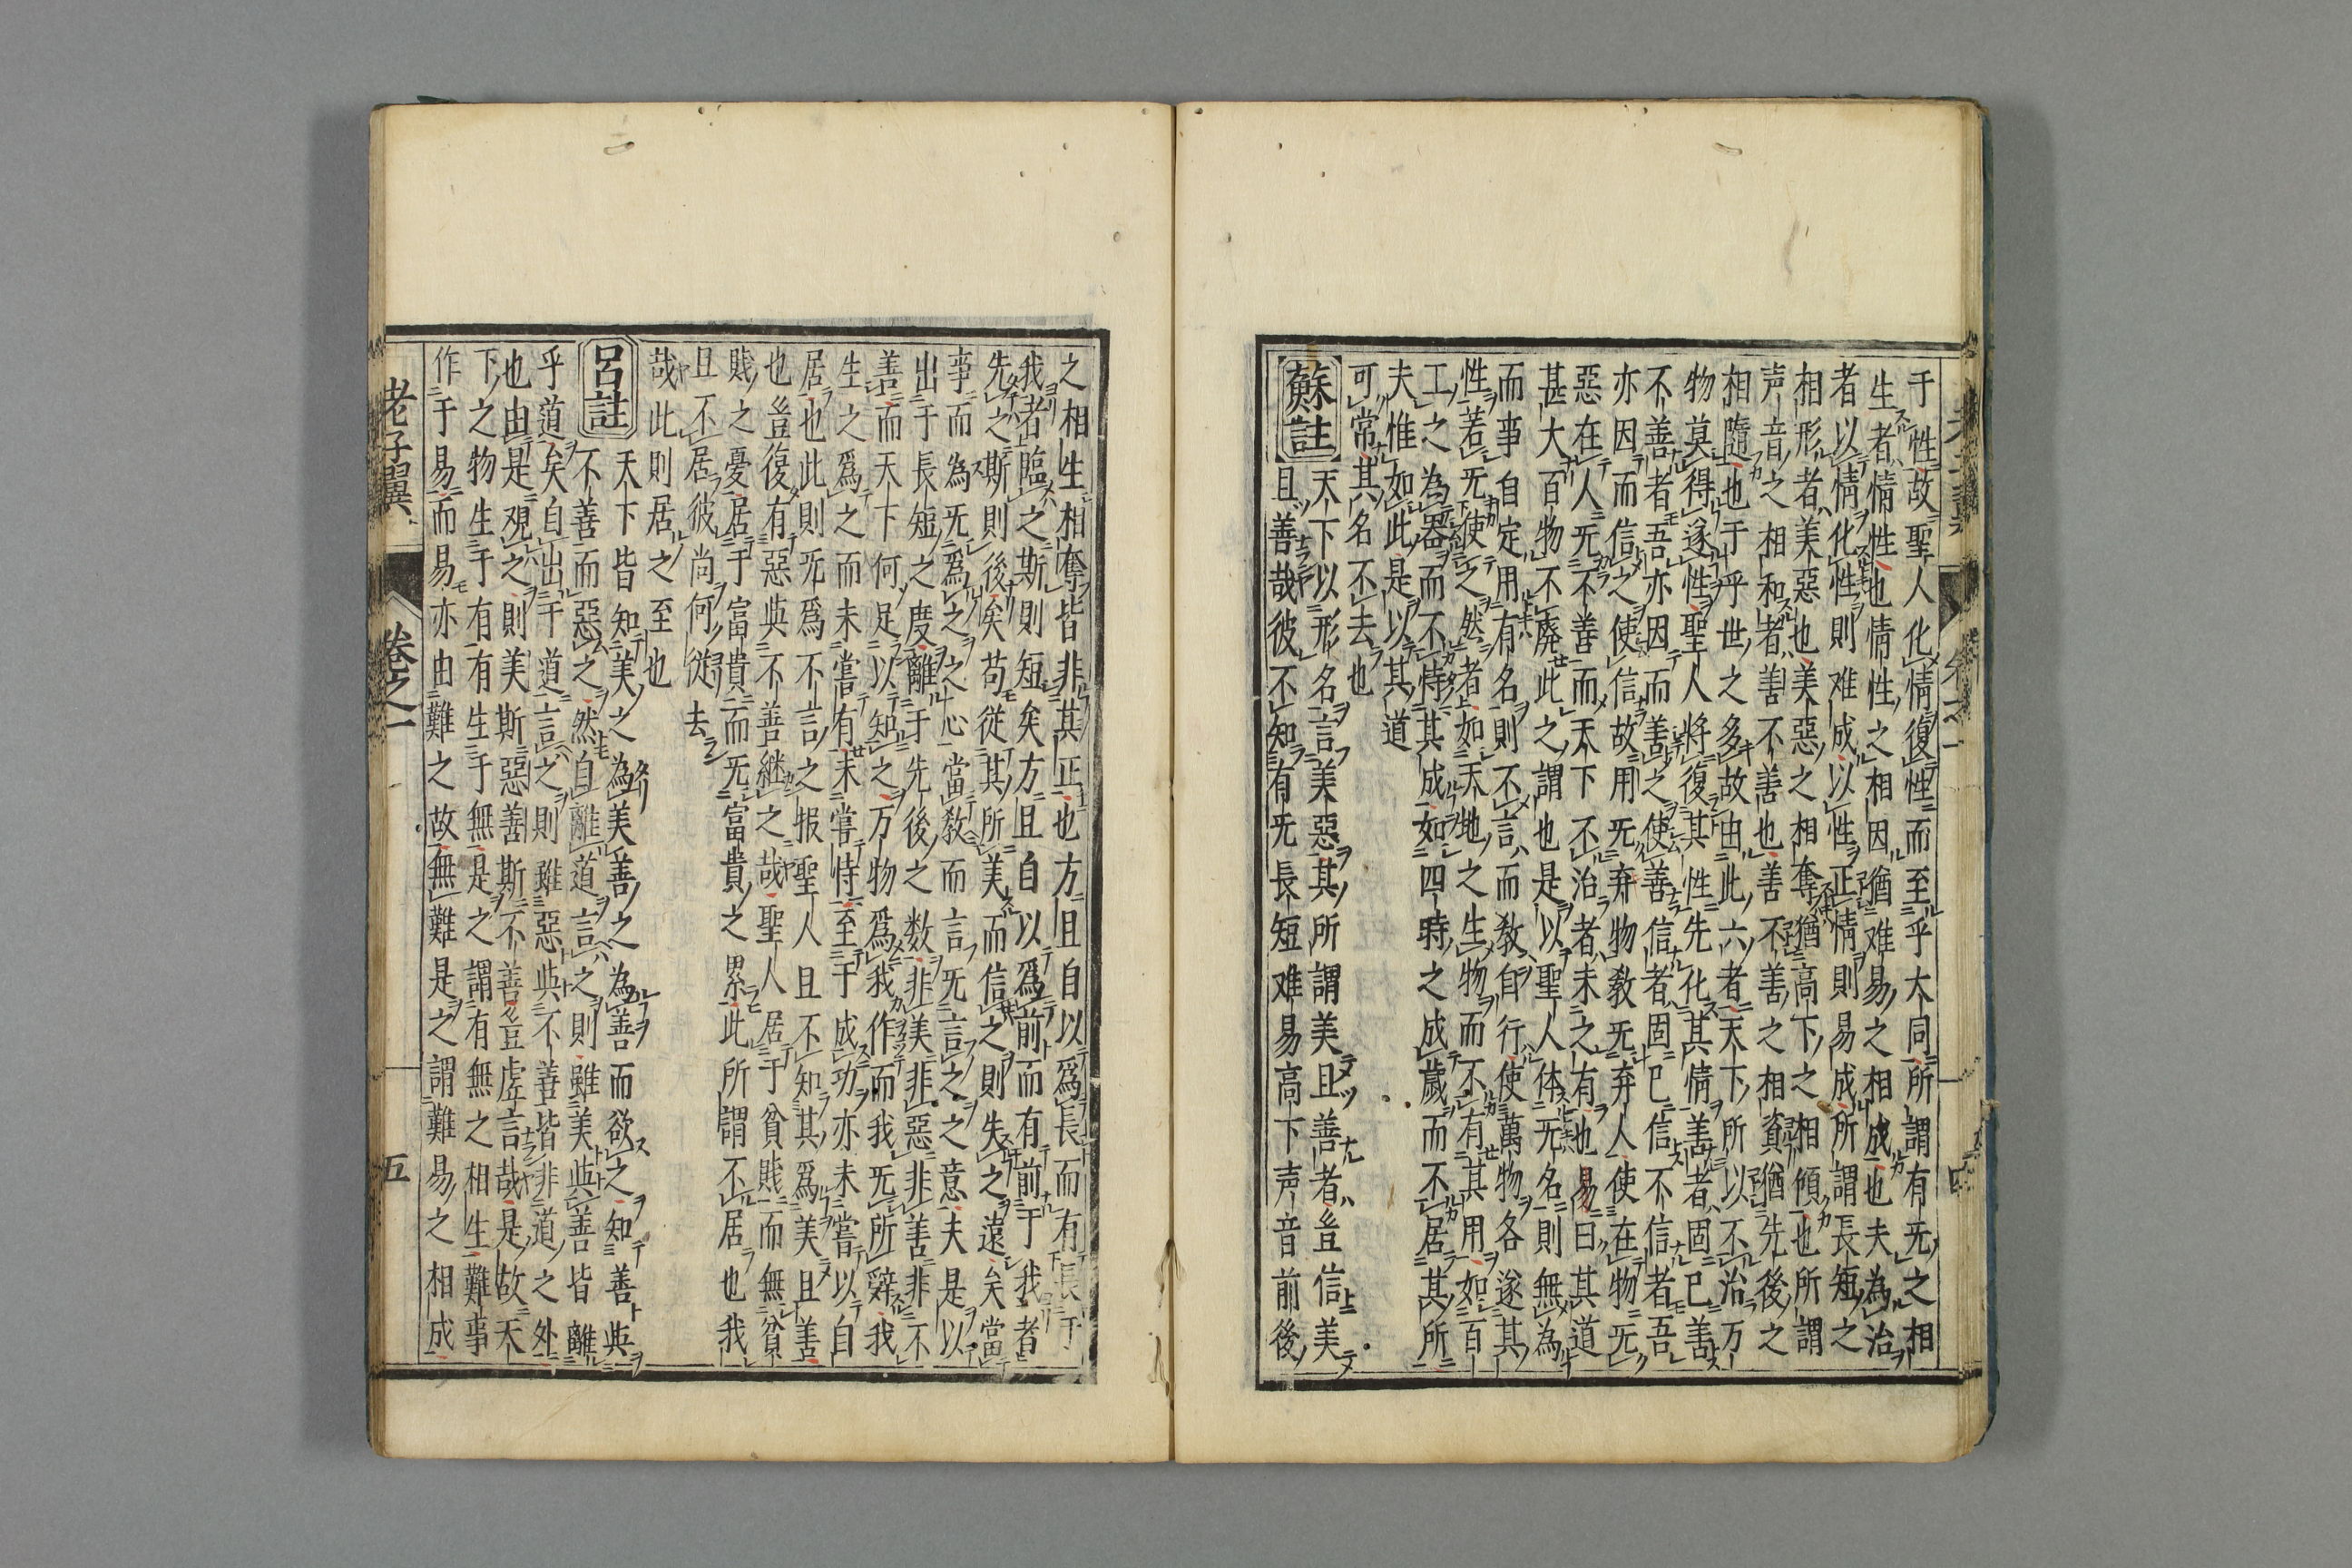 于性故聖人化情復性而至乎大同所謂有无之相
生者情性也情性之相因猶难易之相成也夫為治
者以情化性則难成以性正情則易成所謂長短之
相形者美惡也美惡之相奪猶高下之相傾也所謂
声音之相和者善不善也善不善之相資猶先後之
相随也于乎世之多故由此六者天下所以不治万
物莫得遂性聖人将復其性先化其情善者固已善
不善者吾亦因而善之使善信者固已信不信者吾
亦因而信之使信故用无弃物教无弃人使在物无
惡在人无不善而天下不治者未之有也易曰其道
甚大百物不廃此之謂也是以聖人体无名則無為
而事自定用有名則不言而教自行使萬物各遂其
性若无使之然者如天地之生物而不有其用如百
工之為器而不恃其成如四時之成歲而不居其所
夫惟如此是以其道
可常其名不去也
蘇註 天下以形名言美惡其所謂美且善者豈信美
且善哉彼不知有无長短难易高下声音前後
之相生相奪皆非其正也方且自以爲長而有長于
我者臨之斯則短矣方且自以爲前而有前于我者
先之斯則後矣苟從其所美而信之則失之遠矣當
事而為无爲之之心當教而言无言之之意夫是以
出于長短之度離于先後之数非美非惡非善非不
善而天下何足以知之万物爲我作而我无所辤我
生之爲之而未嘗有未嘗恃至于成功亦未嘗以自
居也此則无爲不言之报聖人且不知其爲美且善
也豈復有惡與不善継之哉聖人居于貧賎而無貧
賎之憂居于富貴而无富貴之累此所謂不居也我
且不居彼尚何從去
哉此則居之至也
呂註 天下皆知美之為美善之為善而欲之知善與
不善而惡之然自離道言之則雖美與善皆離
乎道矣自出于道言之則雖惡與不善皆非道之外
也由是覌之則美斯惡善斯不善豈虚言哉是故天
下之物生于有有生于無是之謂有無之相生難事
作于易而易亦由難之故無難是之謂難易之相成
老子翼 巻之一 五